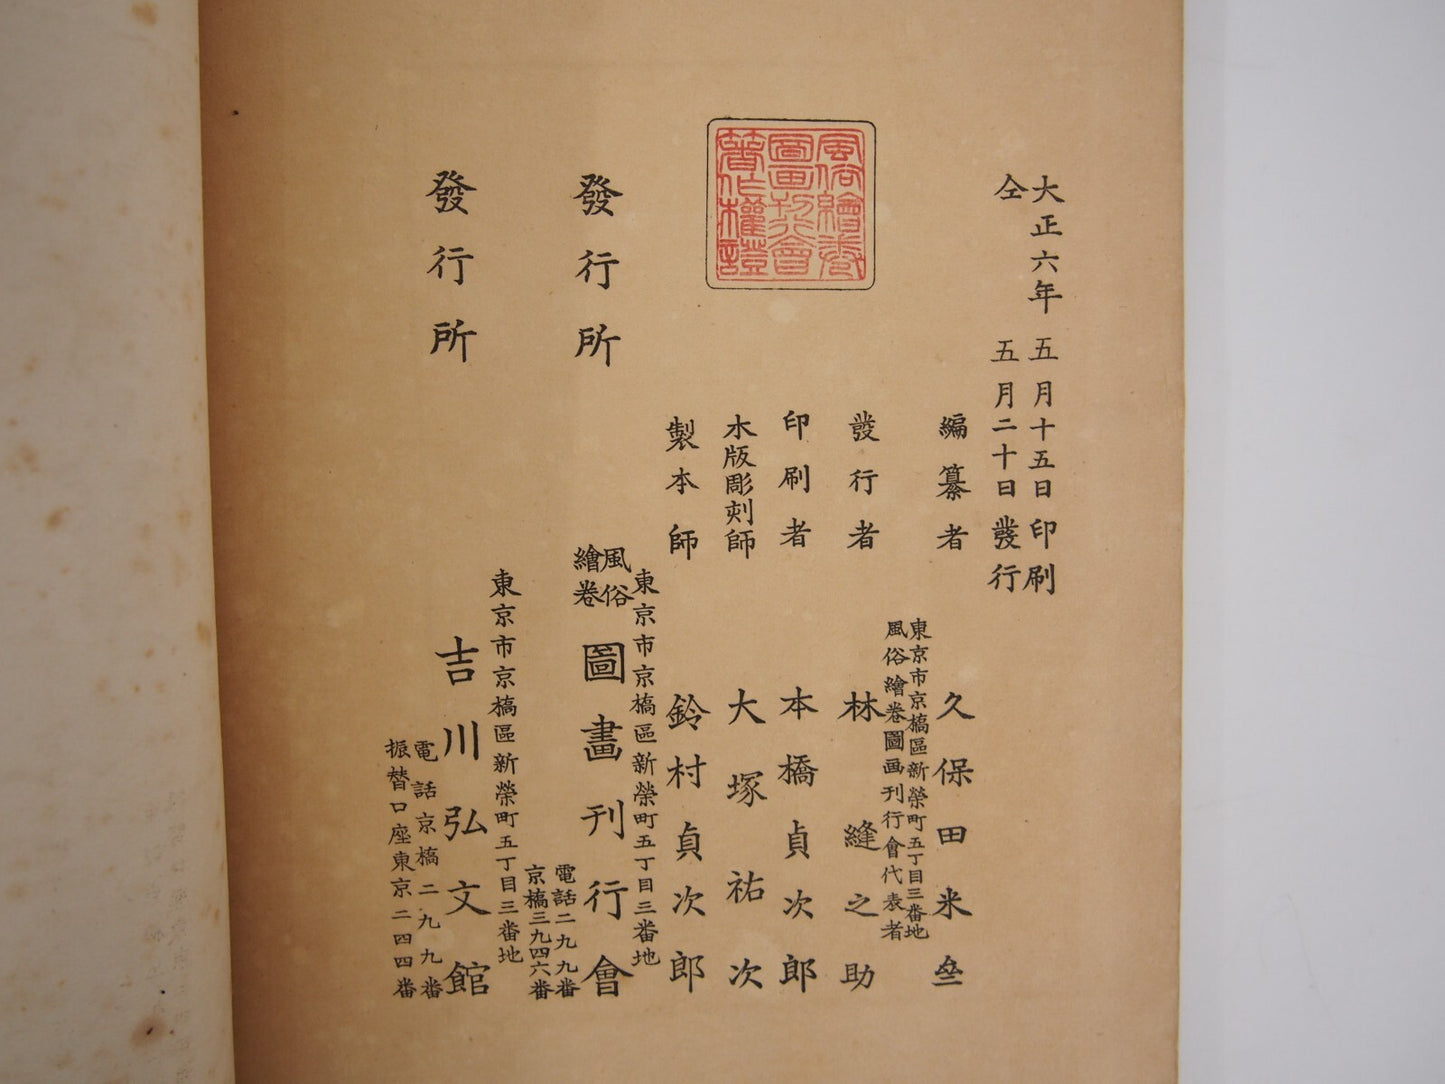 大正六年 五月十五日印刷
仝 五月二十日發行
編纂者 久保田米㕘
東京市京橋區新榮町五丁目三番地
風俗繪卷圖画刊行會代表者
發行者 林縫之助
印刷者 本橋貞次郎
木版彫刻師 大塚祐次
製本師 鈴村貞次郎
風俗繪卷
圖畫刊行會
著作權證
東京市京橋區新榮町五丁目三番地
發行所 風俗繪卷圖畫刊行會
電話二九九番
京橋三九四六番
東京市京橋區新榮町五丁目三番地
發行所 吉川弘文館
電話京橋二九九番
振替口座東京二四四番